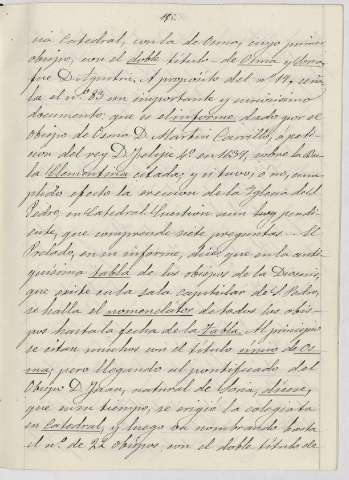 sia Catedral, con la de Osma, cuyo primer
obispo, con el doble titulo - de Osma y Soria,
fue D. Agustin. A propósito del nº 19. seña
la el nº 83 un importante y curiosisimo
documento, que es el informe, dado por el
obispo de Osma D. Martin Carrillo, a peti-
cion del rey D. Felipe 4º en 1639, sobre la Bu-
la Clementina citada, y si tuvo, ó no, cum
plido efecto la ereccion de la Iglesia de S.
Pedro, en Catedral. Cuestion aun hoy pendi-
ente, que comprende siete preguntas. El
Prelado, en su informe, dice, que en la anti-
quisima tabla de los obispos de la Diocesis,
que existe en la sala capitular de S. Pedro,
se halla el nomenclator de todos los obis-
pos hasta la fecha de la Tabla. Al principio
se citan muchos con el titulo unico de Os-
ma; pero llegando al pontificado del
Obispo D. Juan, natural de Soria, dicese,
que en su tiempo, se erigió la colegiata
en Catedral, y luego va nombrando hasta
el nº de 22 obispos, con el doble titulo de